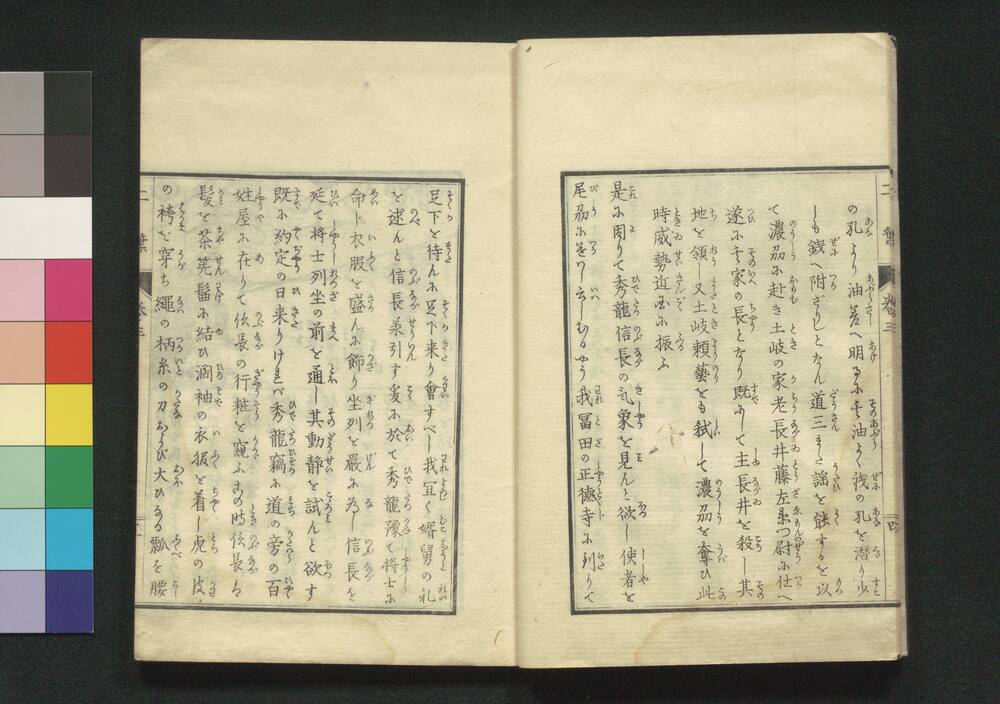 の孔より油差へ明るに其油よく銭の孔を潜り少
しも銭へ附ざりしとなん道三また謡を能するを以
て濃刕に赴き土岐の家老長井藤左衛門尉に仕へ
遂に其家の長となり既にして主長井を殺し其
地を領し又土岐頼藝をも弑して濃刕を奪ひ此
時威勢近国に振ふ
是に因りて秀龍信長の氣象を見んと欲し使者を
尾刕に
我冨田の正徳寺に到りて
足下を待んに足下来り會すべし我冝く婿舅の礼
を述んと信長兼引す爰に於て秀龍豫て将士に
命じ衣服を盛んに飾り坐列を嚴に為し信長を
延て将士列坐の前を通し其動静を試んと欲す
既に約定の日来りければ秀龍竊に道の旁の百
姓屋に在りて信長の行粧を窺ふ此時信長は
髪を茶筅髷に結ひ濶袖の衣服を着し虎の皮
の袴を穿ち繩の柄糸の刀および大ひなる瓢を腰